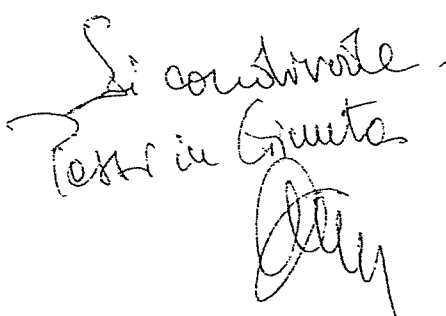 Si condivide.
Passi in Giunta